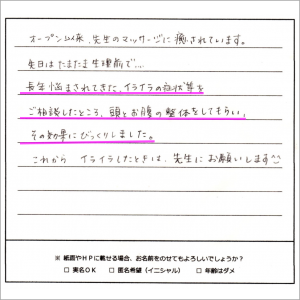 オープン以来、先生のマッサージに癒されています。
先日はたまたま生理前で…
長年悩まされてきた、イライラの症状等を
ご相談したところ、頭とお腹の整体をしてもらい、
その効果にびっくりしました。
これから イライラしたときは、先生にお願いします^^
※ 紙面やHPに載せる場合、お名前をのせてもよろしいでしょうか？
□ 実名OK □ 匿名希望（イニシャル） □ 年齢はダメ